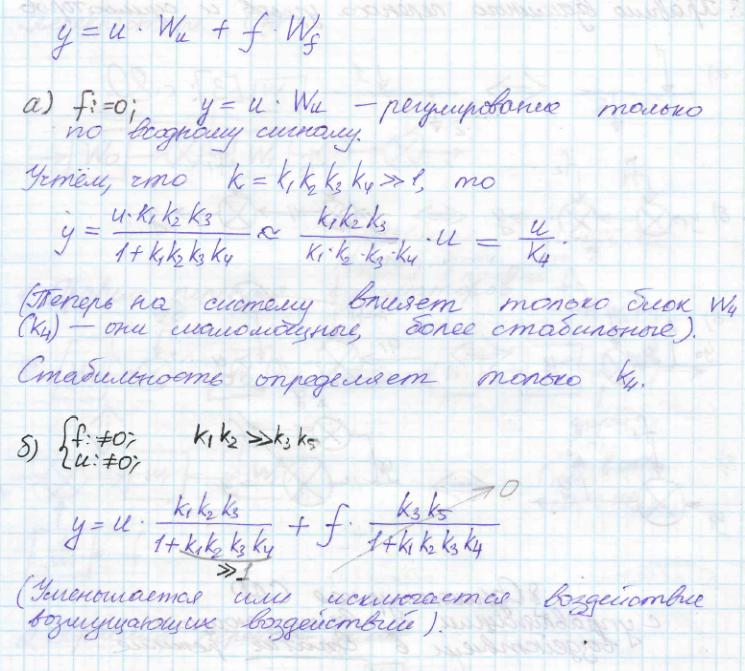 y = u · Wu + f · Wf
а) fi=0; y = u · Wu — регулирование только
по входному сигналу.
Учтём, что k = k₁k₂k₃k₄ ≫ 1, то
y = u·k₁k₂k₃ / (1+k₁k₂k₃k₄) ≈ k₁k₂k₃ / (k₁·k₂·k₃·k₄) · u = u / k₄.
(Теперь на систему влияет только блок W₄
(k₄) — они маломощные, более стабильные).
Стабильность определяет только k₄.
б) { fi≠0; k₁k₂ ≫ k₃k₅
{ ui≠0;
y = u · k₁k₂k₃ / (1+k₁k₂k₃k₄) + f · k₃k₅ / (1+k₁k₂k₃k₄) → 0
≫1
(Уменьшается или исключается воздействие
возмущающих воздействий).